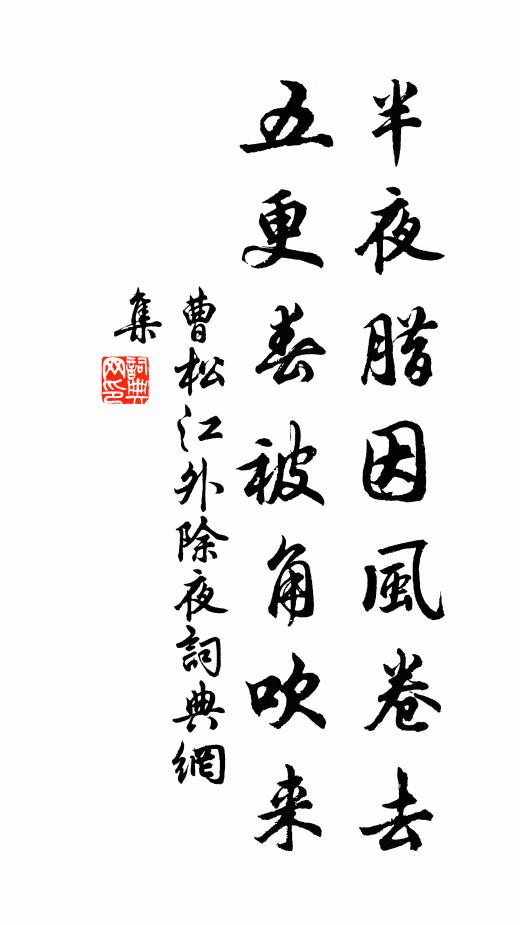 半夜腊因風卷去
五更春被角吹来
曹松江外除夜詞典網
集
詞典
网印